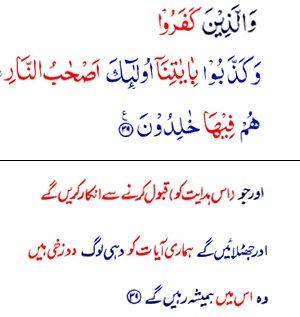 وَالَّذِيْنَ كَفَرُوْا
وَكَذَّبُوْا بِاٰيٰتِنَآ اُولٰٓئِكَ اَصْحٰبُ النَّارِ
هُمْ فِيْهَا خٰلِدُوْنَ ﴿۳۹﴾ ع
اور جو (اس ہدایت کو) قبول کرنے سے انکار کریں گے
اور جھٹلائیں گے ہماری آیات کو وہی لوگ دوزخی ہیں
وہ اس میں ہمیشہ رہیں گے ﴿۳۹﴾